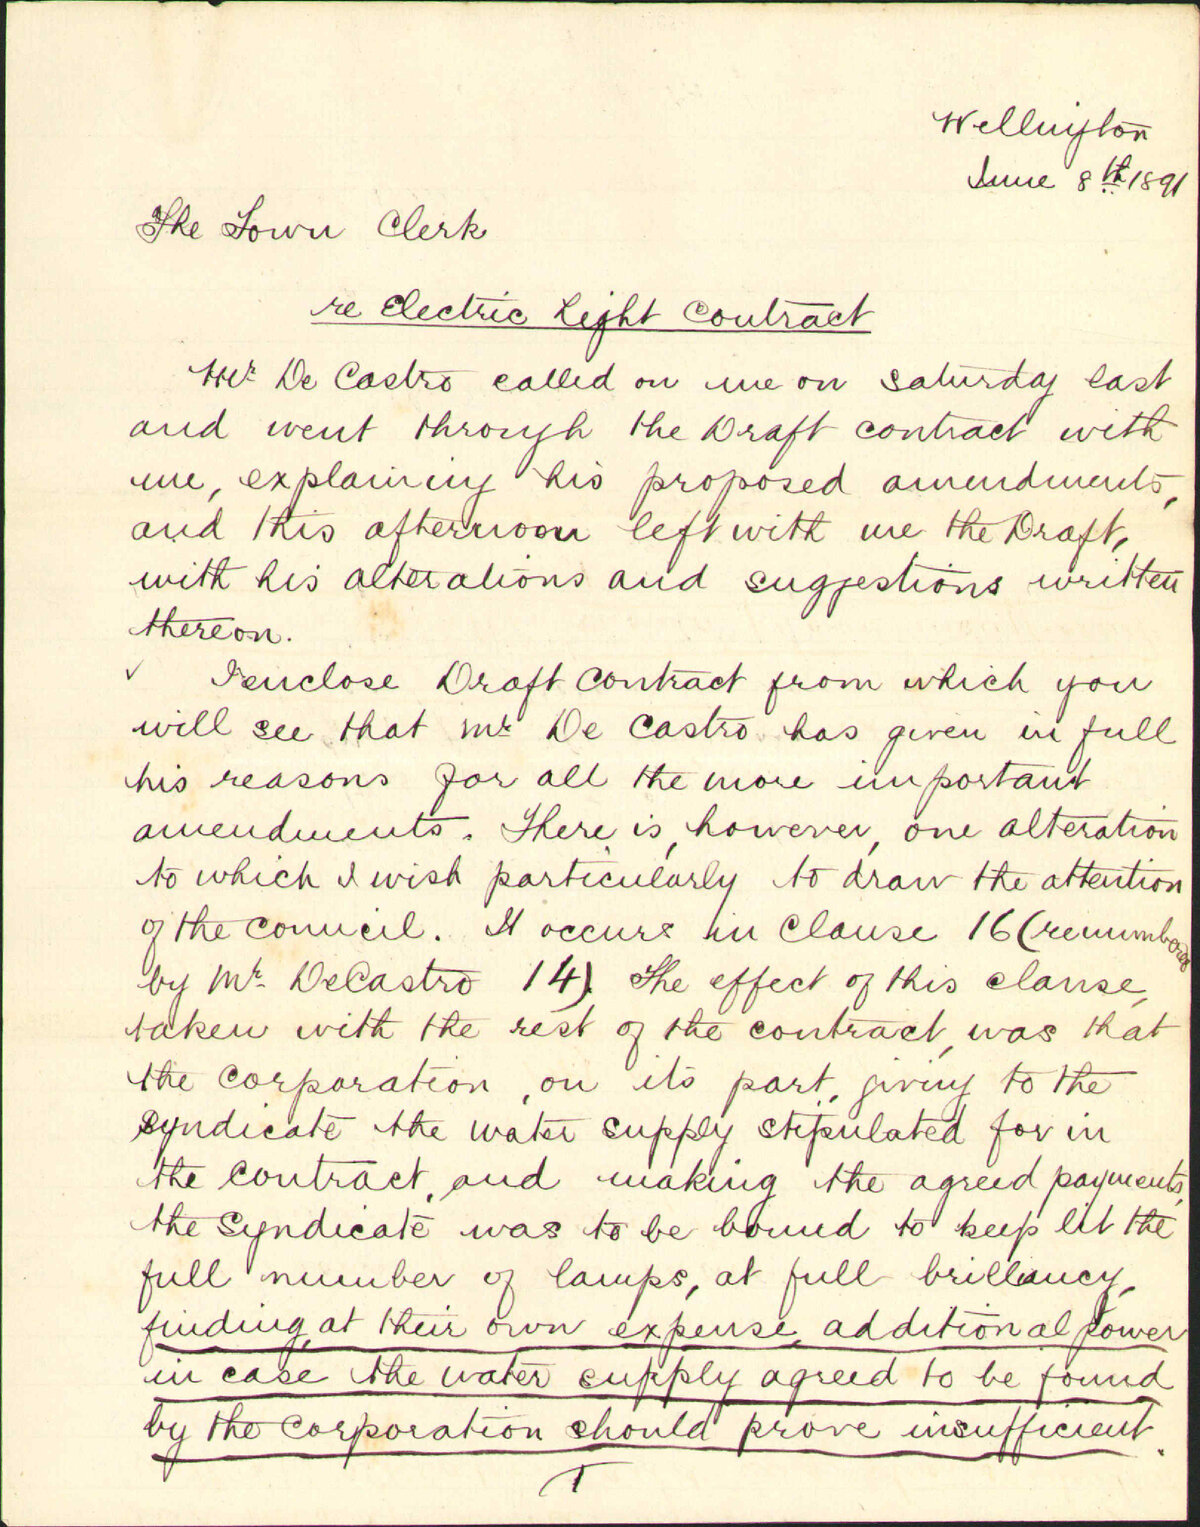 Wellington
June 8th 1891
The Town Clerk
re Electric Light Contract
Mr De Castro called on me on Saturday last
and went through the Draft contract with
me, explaining his proposed amendments,
and this afternoon left with me the Draft,
with his alterations and suggestions written
thereon.
✓ I enclose Draft Contract from which you
will see that Mr De Castro has given in full
his reasons for all the more important
amendments. There is, however, one alteration
to which I wish particularly to draw the attention
of the Council. It occurs in Clause 16 (renumbered
by Mr DeCastro 14). The effect of this clause,
taken with the rest of the contract, was that
the Corporation, on its part, giving to the
Syndicate the water supply stipulated for in
the contract, and making the agreed payments,
the Syndicate was to be bound to keep lit the
full number of lamps, at full brillancy,
finding, at their own expense, additional power
in case the water supply agreed to be found
by the Corporation should prove insufficient.